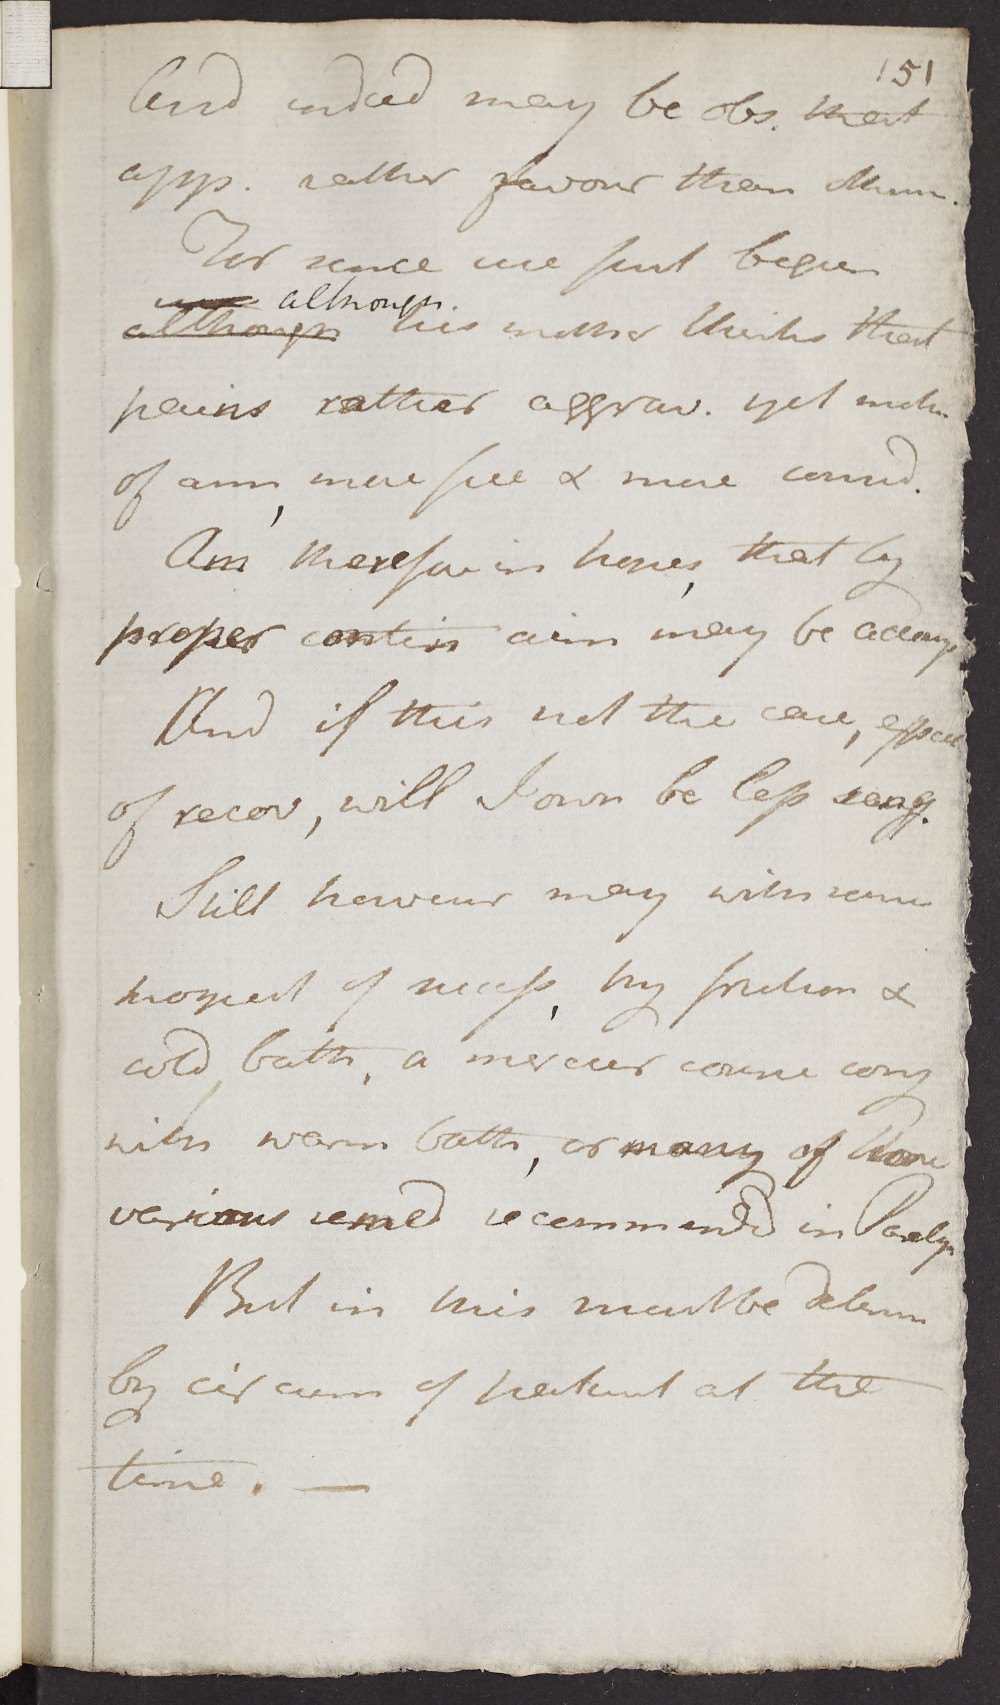 151
And indeed may be obs. that
app. rather favour than
For since we first began
although
although his mother thinks that
pains rather aggrav. yet motn
of arm, more free & more comd.
Am therefore in hopes, that by
proper contin aim may be accomp
And if this not the case, expect
of recov, will I own be less sang.
Still however may with some
prospect of success, try friction &
cold bath, a mercur course conj
with warm bath, or many of those
various remed recommend in Paralys
But in this must be determ
by circum of patient at the
time. —